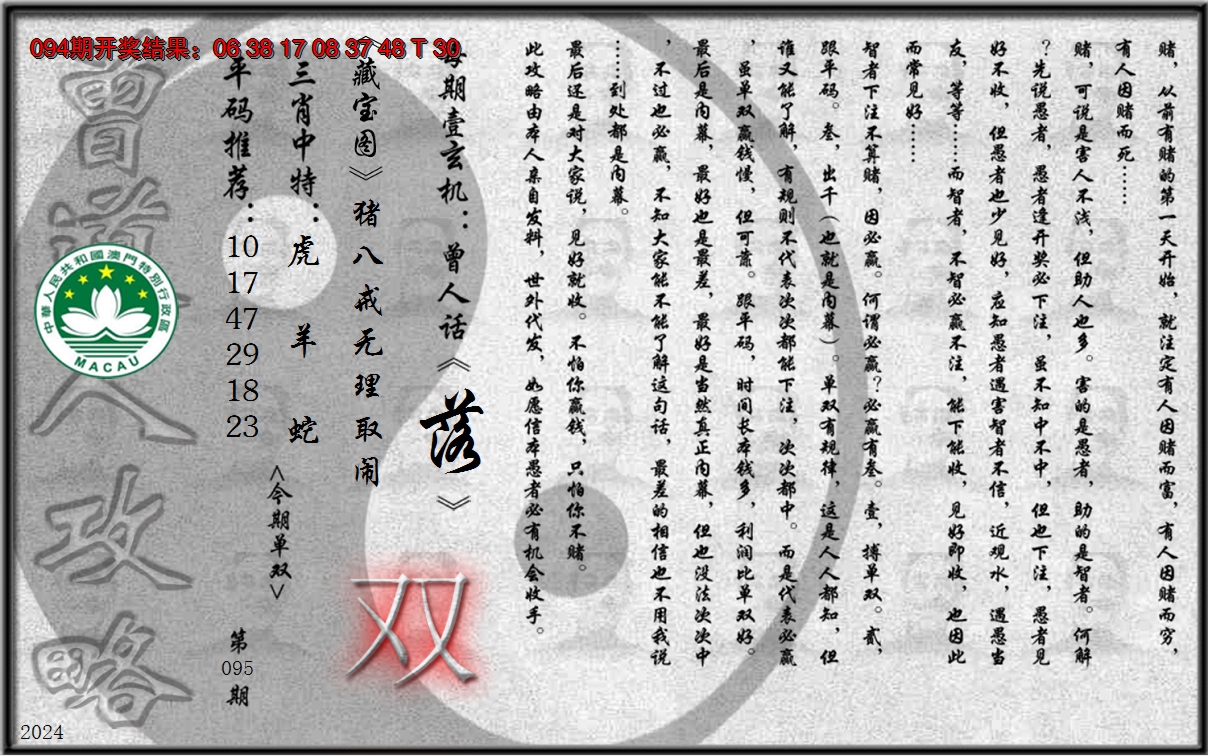 094期开奖结果：06 38 17 08 37 48 T 30
赌，从前有赌的第一天开始，就注定有人因赌而富，有人因赌而穷，
有人因赌而死……
赌，可说是害人不浅，但助人也多。害的是愚者，助的是智者。何解
？先说愚者，愚者逢开奖必下注，虽不知中不中，但也下注，愚者见
好不收，但愚者也少见好，应知愚者遇害智者不信，近观水，遇愚当
友，等等……而智者，不智必赢不注，能下能收，见好即收，也因此
而常见好……
智者下注不算赌，因必赢。何谓必赢？必赢有叁。壹，搏单双。贰，
跟平码。叁，出千（也就是内幕）。单双有规律，这是人人都知，但
谁又能了解，有规则不代表次次都能下注，次次都中。而是代表必赢
，虽单双赢钱慢，但可靠。跟平码，时间长本钱多，利润比单双好。
最后是内幕，最好也是最差，最好是当然真正内幕，但也没法次次中
，不过也必赢，不知大家能不能了解这句话，最差的相信也不用我说
……到处都是内幕。
最后还是对大家说，见好就收。不怕你赢钱，只怕你不赌。
此攻略由本人亲自发料，世外代发，如愿信本愚者必有机会收手。
每期壹玄机：曾人话《落》
《藏宝图》猪八戒无理取闹
双
三肖中特：虎 羊 蛇
<今期单双>
平码推荐：
10
17
47
29
18
23
第
095
期
曾道人攻略
中華人民共和國澳門特別行政區
MACAU
2024